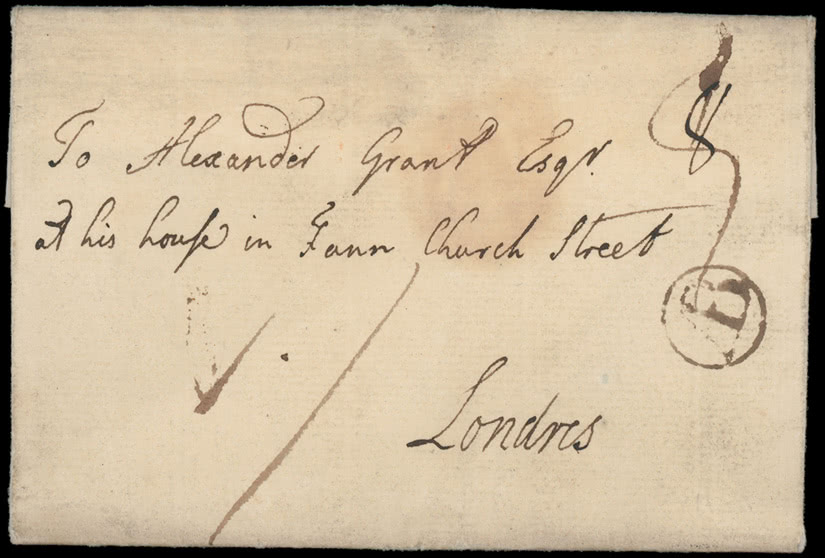 To Alexander Grant Esqr.
8
at his houſe in Fann Church Street
B
Londres